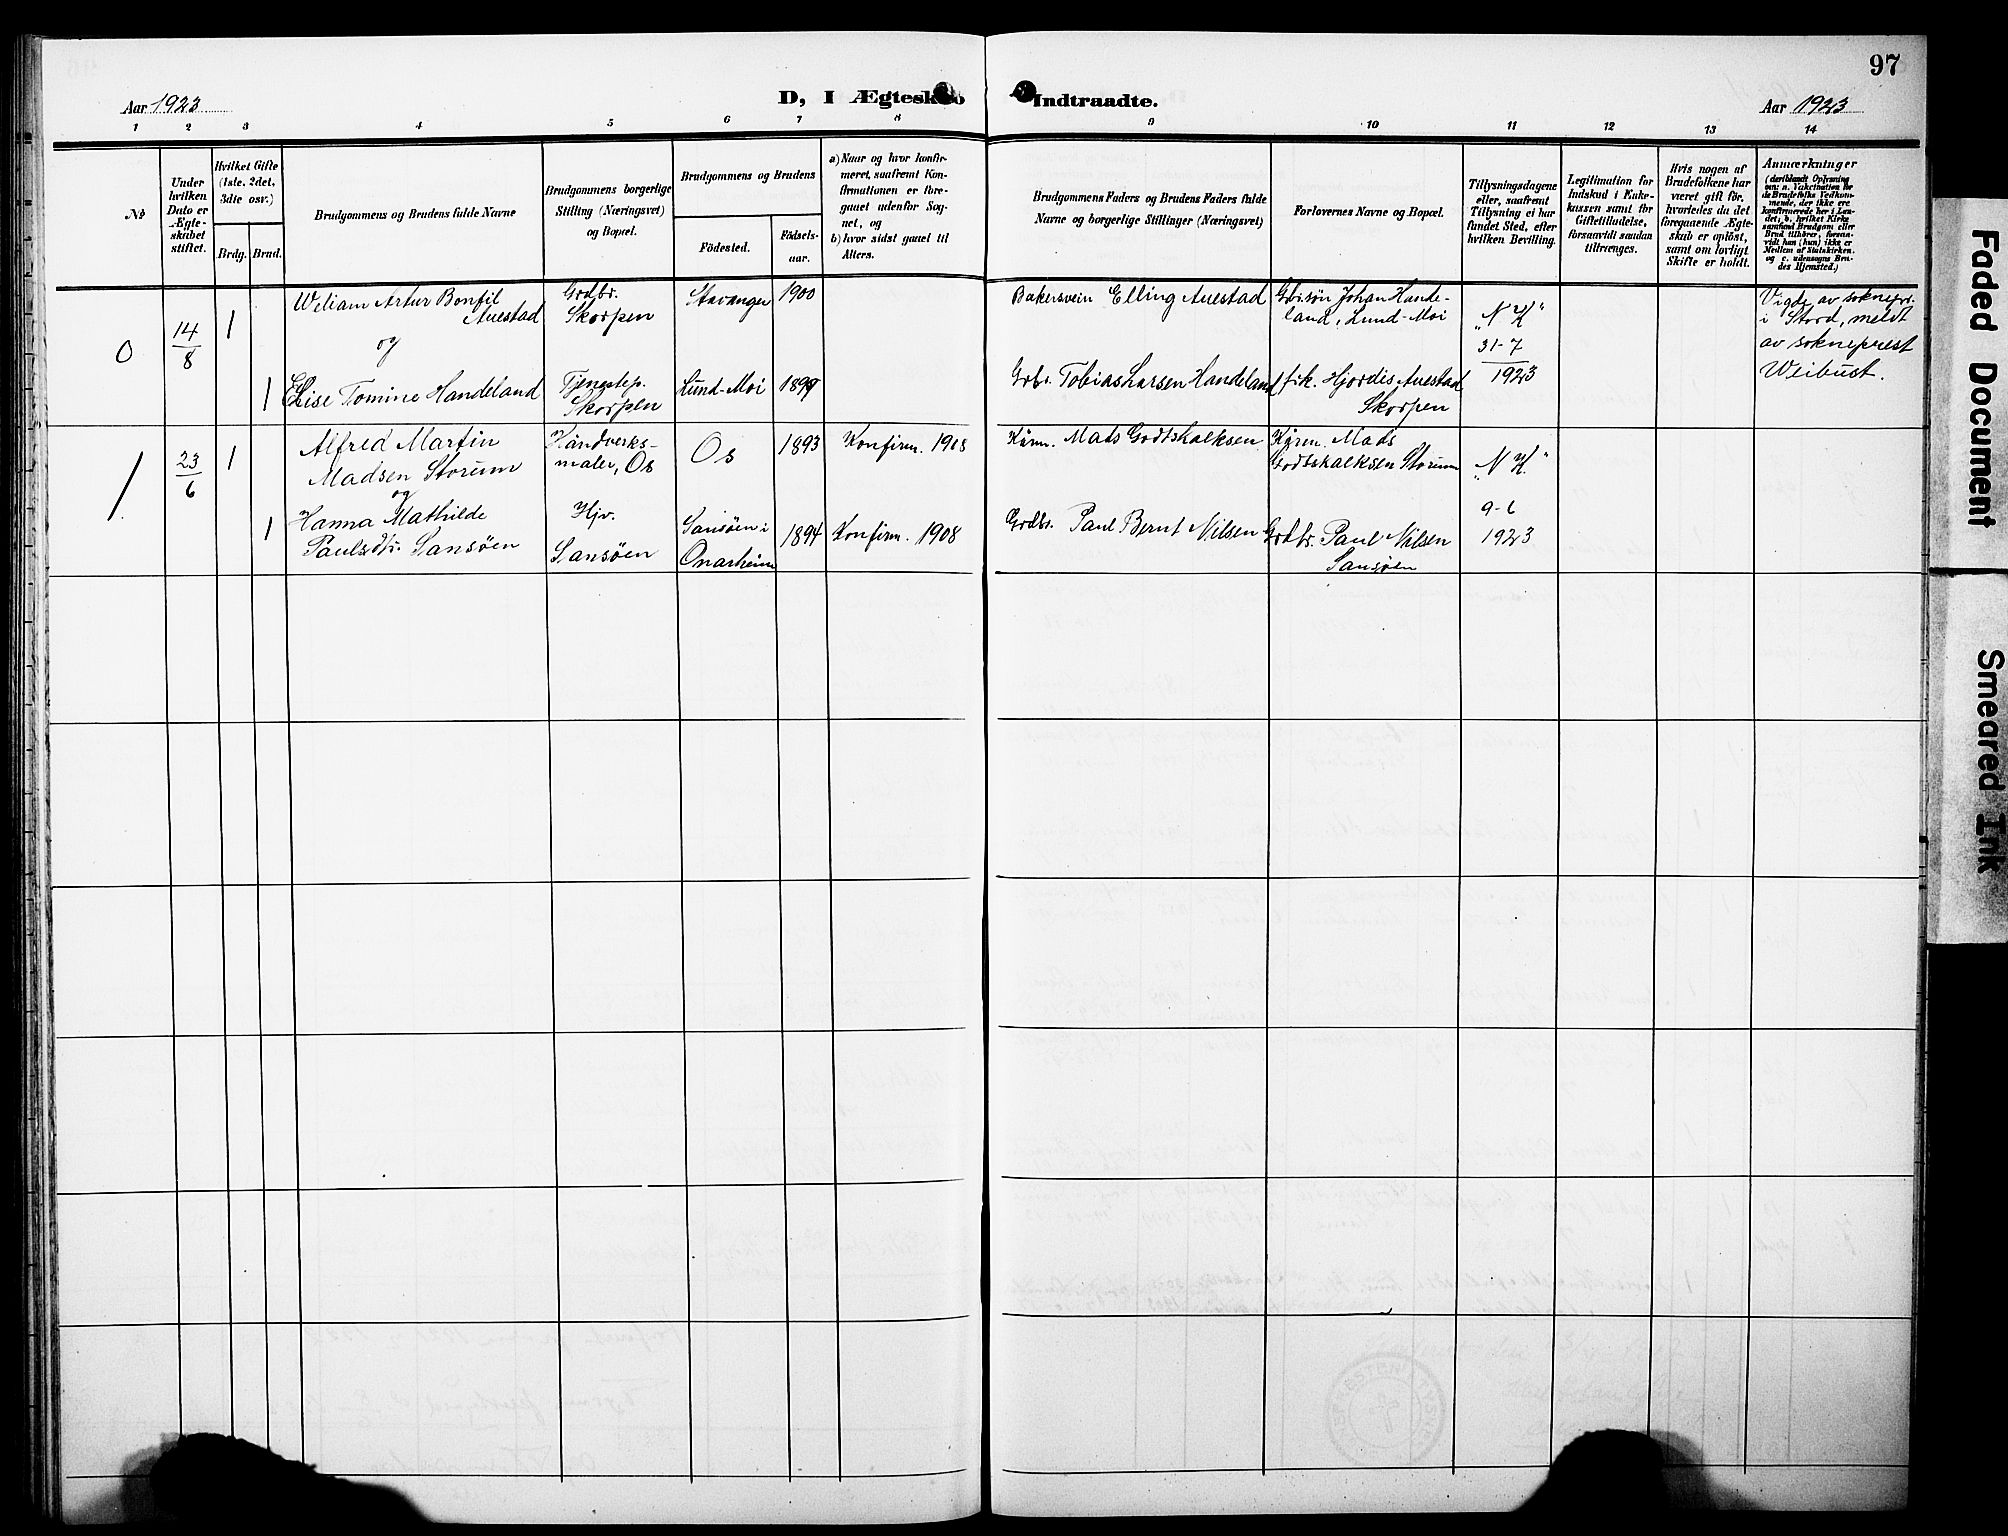 97
Aar 1923
D, I Ægtesk
Indtraadte.
Aar 1923
1 2 3 4 5 6 7 8 9 10 11 12 13 14
No
Under hvilken Dato er Ægteskabet stiftet.
Hvilket Gifte (1ste, 2det, 3die osv.)
Brdg. Brud.
Brudgommens og Brudens fulde Navne
Brudgommens borgerlige Stilling (Næringsvei) og Bopæl.
Brudgommens og Brudens
Fødested.
Fødselsaar.
a) Naar og hvor konfirmeret, saafremt Konfirmationen er foregaaet udenfor Sognet, og
b) hvor sidst gaaet til Alters.
Brudgommens Faders og Brudens Faders fulde Navne og borgerlige Stillinger (Næringsvei)
Forlovernes Navne og Bopæl.
Tillysningsdagene eller, saafremt Tillysning ei har fundet Sted, efter hvilken Bevilling.
Legitimation for Indskud i Enkekassen samt for Giftetilladelse, forsaavidt saadan tiltrænges.
Hvis nogen af Brudefolkene har været gift før, hvorledes da det foregaaende Ægteskab er opløst, samt om lovligt Skifte er holdt.
Anmærkninger
(deriblandt Oplysning om: a. Vakcination for de Brudefolks Vedkommende, der ikke ere konfirmerede her i Landet; b. hvilket Kirkesamfund Brudgom eller Brud tilhører, forsaavidt han (hun) ikke er Medlem af Statskirken, og c. udensogns Brudes Hjemsted.)
0
14/8
1
Weliam Artur Bonfil
Auestad
og
Grdbr.
Skorpen
Stavanger
1900
Bakersvein Elling Auestad
Gbrsøn Johan Hande-
land, Lund-Moi
"N K"
31-7
1923
Vigde av sokneprs.
i Stord, meldt
av sokneprest
Weibust.
1
Elise Tomine Handeland
Tjenestep.
Skorpen
Lund-Moi
1899
Grbr. Tobias Larsen Handeland
frk. Hjordis Auestad
Skorpen
1
23/6
1
Alfred Martin
Madsen Storum
og
Håndverks-
maler, Os
Os
1893
Konfirm. 1908
Kårm. Mats Godtskalksen
Kårm. Mads
Godtskalksen Storum
"N K"
9-6
1923
1
Hanna Mathilde
Paulsdtr. Sansøen
Hjv.
Sansøen
Sansøen i
Onarheim
1894
Konfirm. 1908
Grdbr. Paul Bernt Nilsen
Grdbr. Paul Nilsen
Sansøen
Faded Document
Smeared Ink